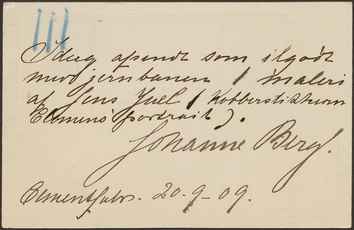 III
Idag afsendt som ilgods
med jernbanen 1 maleri
af Jens Juel (Kobberstikkeren
Clemens portrait).
Johanne Bergh.
Cementfabr. 20-9-09.